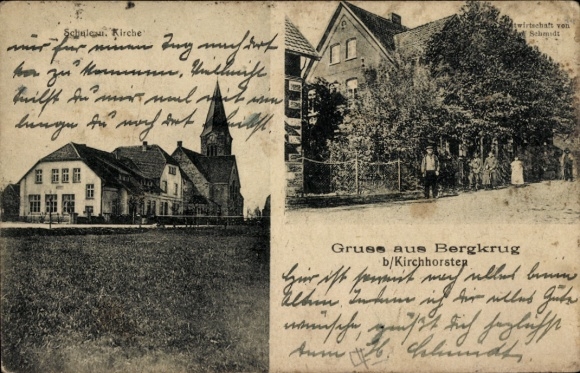 Schule u. Kirche
nur für einen Tag nach dort
zu kommen. Vielleicht
teilst du mir mal mit wie
lange du noch dort bleibst
Gastwirtschaft von
Schmidt
Gruss aus Bergkrug
b/Kirchhorsten
Hier ist soweit noch alles beim
Alten. Indem ich dir alles Gute
wünsche, grüßt Dich herzlichst
dein H. Schmidt.